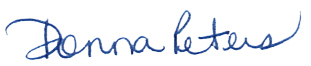 Donna Peters